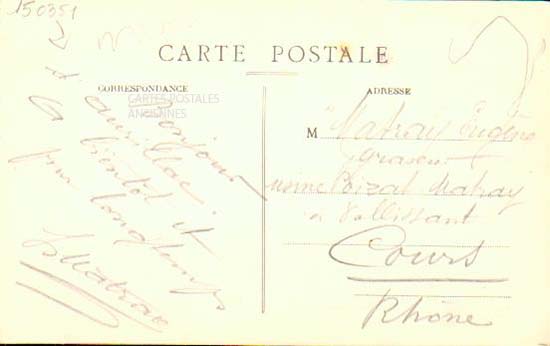 150351
CARTE POSTALE
CORRESPONDANCE
CARTES POSTALES
ANCIENNES
Bonjour
d'aurillac.
A bientôt et
pour longtemps
Matray
ADRESSE
M Matray Eugène
graveur
usine Poizat Matray
à Vallissant
Cours
Rhône